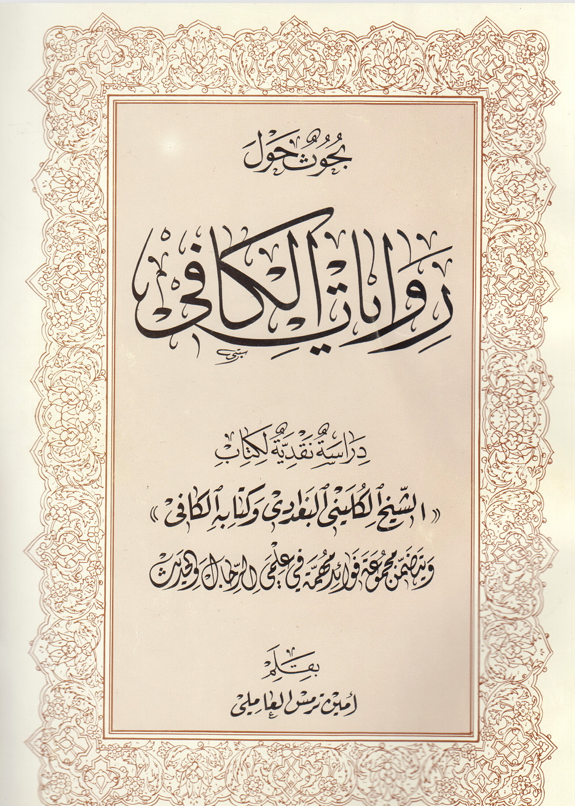 بُحُوثٌ حَوْلَ
رِوَايَاتِ الْكَافِي
دِرَاسَةٌ نَقْدِيَّةٌ لِكِتَابِ
« الشَّيْخ الْكُلَيْنِي الْبَغْدَادِي وَكِتَابِهِ الْكَافِي »
وَيَتَضَمَّنُ مَجْمُوعَةَ فَوَائِدَ مُهِمَّةٍ فِي عِلْمَيِ الرِّجَالِ وَالْحَدِيثِ
بِقَلَمِ
أمين ترمس العاملي